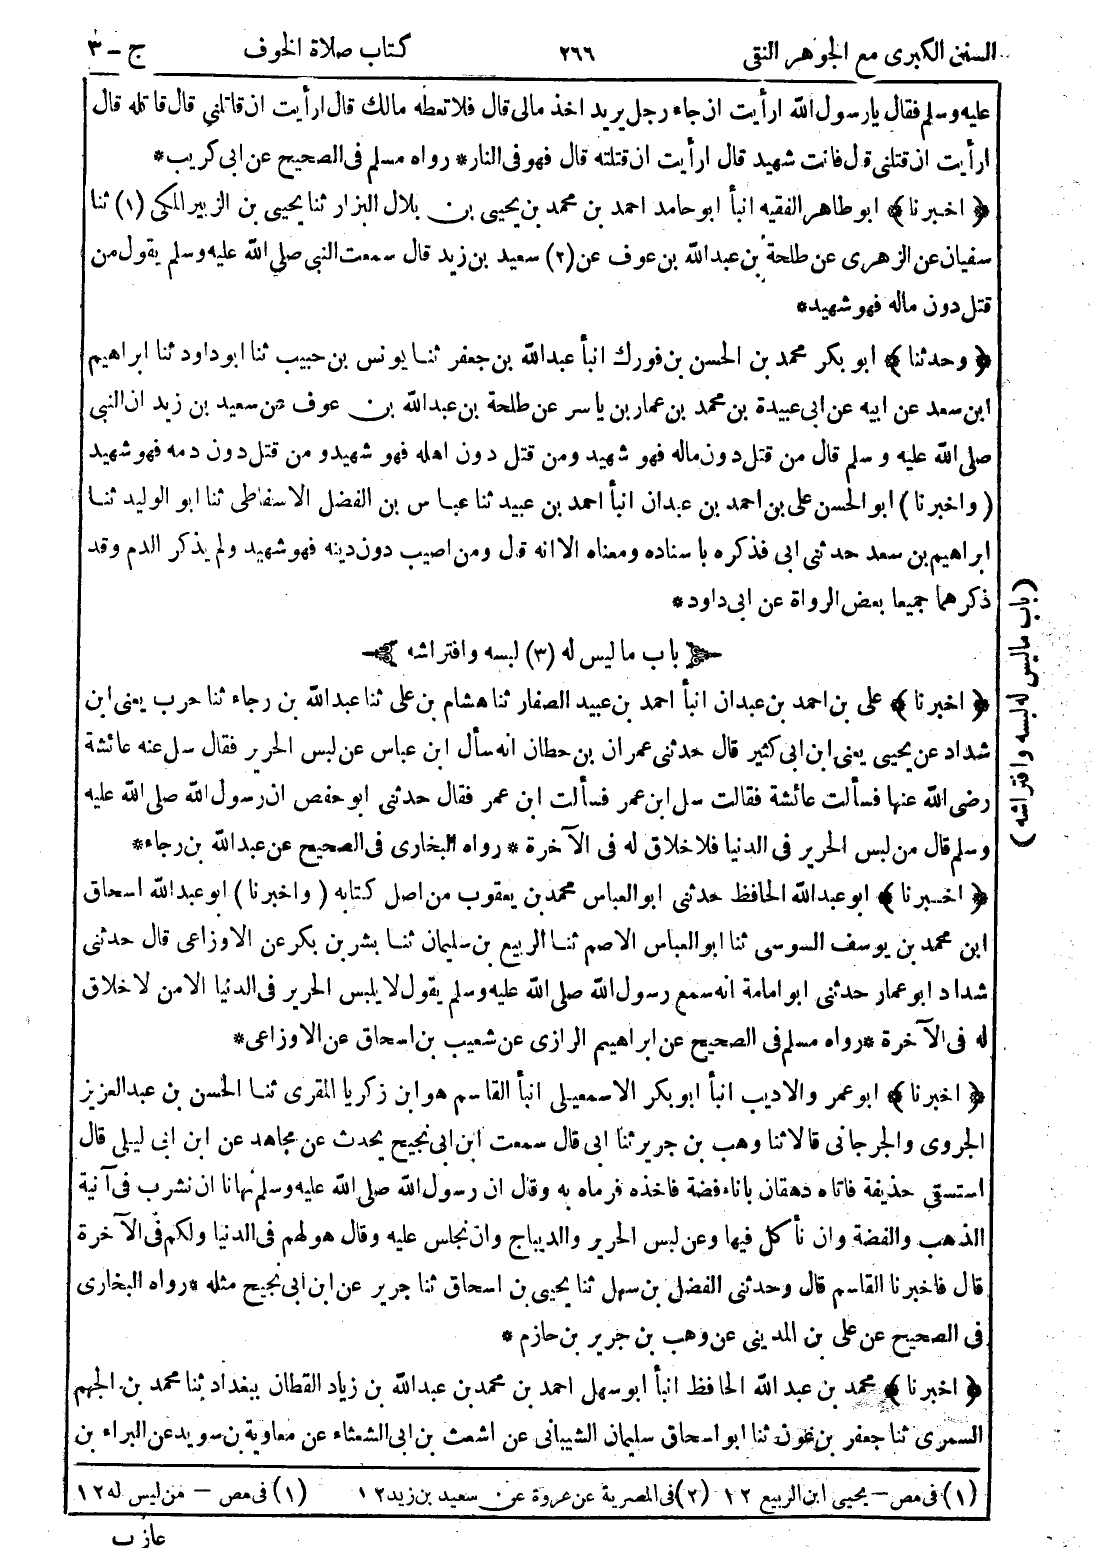 السنن الكبرى مع الجوهر النقى ٢٦٦ كتاب صلاة الخوف ج - ٣
عليه وسلم فقال يا رسول الله ارأيت ان جاء رجل يريد اخذ مالى قال فلا تعطه مالك قال ارأيت ان قاتلنى قال قاتله قال
ارأيت ان قتلنى قال فانت شهيد قال ارأيت ان قتلته قال فهو فى النار* رواه مسلم فى الصحيح عن ابى كريب*
﴿ اخبرنا ﴾ ابو طاهر الفقيه انبأ ابو حامد احمد بن محمد بن يحيى بن بلال البزار ثنا يحيى بن الزبير المكى (١) ثنا
سفيان عن الزهرى عن طلحة بن عبدالله بن عوف عن (٢) سعيد بن زيد قال سمعت النبى صلى الله عليه وسلم يقول من
قتل دون ماله فهو شهيد*
﴿ وحدثنا ﴾ ابو بكر محمد بن الحسن بن فورك انبأ عبدالله بن جعفر ثنا يونس بن حبيب ثنا ابو داود ثنا ابراهيم
ابن سعد عن ابيه عن ابى عبيدة بن محمد بن عمار بن ياسر عن طلحة بن عبدالله بن عوف عن سعيد بن زيد ان النبى
صلى الله عليه وسلم قال من قتل دون ماله فهو شهيد ومن قتل دون اهله فهو شهيد ومن قتل دون دمه فهو شهيد
(واخبرنا) ابو الحسن على بن احمد بن عبدان انبأ احمد بن عبيد ثنا عباس بن الفضل الاسفاطى ثنا ابو الوليد ثنا
ابراهيم بن سعد حدثنى ابى فذكره باسناده ومعناه الا انه قال ومن اصيب دون دينه فهو شهيد ولم يذكر الدم وقد
ذكرهما جميعا بعض الرواة عن ابى داود*
﴿ باب ما ليس له (٣) لبسه وافتراشه ﴾
﴿ اخبرنا ﴾ على بن احمد بن عبدان انبأ احمد بن عبيد الصفار ثنا هشام بن على ثنا عبدالله بن رجاء ثنا حرب يعنى ابن
شداد عن يحيى يعنى ابن ابى كثير قال حدثنى عمران بن حطان انه سأل ابن عباس عن لبس الحرير فقال سل عنه عائشة
رضى الله عنها فسألت عائشة فقالت سل ابن عمر فسألت ابن عمر فقال حدثنى ابو حفص ان رسول الله صلى الله عليه
وسلم قال من لبس الحرير فى الدنيا فلا خلاق له فى الآخرة* رواه البخارى فى الصحيح عن عبدالله بن رجاء*
﴿ اخبرنا ﴾ ابو عبدالله الحافظ حدثنى ابو العباس محمد بن يعقوب من اصل كتابه (واخبرنا) ابو عبدالله اسحاق
ابن محمد بن يوسف السوسى ثنا ابو العباس الاصم ثنا الربيع بن سليمان ثنا بشر بن بكر عن الاوزاعى قال حدثنى
شداد ابو عمار حدثنى ابو امامة انه سمع رسول الله صلى الله عليه وسلم يقول لا يلبس الحرير فى الدنيا الا من لا خلاق
له فى الآخرة* رواه مسلم فى الصحيح عن ابراهيم الرازى عن شعيب بن اسحاق عن الاوزاعى*
﴿ اخبرنا ﴾ ابو عمر والاديب انبأ ابو بكر الاسمعيلى انبأ القاسم هو ابن زكريا المقرى ثنا الحسن بن عبدالعزيز
الجروى والجرجانى قالا ثنا وهب بن جرير ثنا ابى قال سمعت ابن ابى نجيح يحدث عن مجاهد عن ابن ابى ليلى قال
استسقى حذيفة فاتاه دهقان باناء فضة فاخذه فرماه به وقال ان رسول الله صلى الله عليه وسلم نهانا ان نشرب فى آنية
الذهب والفضة وان نأكل فيها وعن لبس الحرير والديباج وان نجلس عليه وقال هو لهم فى الدنيا ولكم فى الآخرة
قال فاخبرنا القاسم قال وحدثنى الفضل بن سهل ثنا يحيى بن اسحاق ثنا جرير عن ابن ابى نجيح مثله* رواه البخارى
فى الصحيح عن على بن المدينى عن وهب بن جرير بن حازم*
﴿ اخبرنا ﴾ محمد بن عبد الله الحافظ انبأ ابو سهل احمد بن محمد بن عبدالله بن زياد القطان ببغداد ثنا محمد بن الجهم
السمرى ثنا جعفر بن عون ثنا ابو اسحاق سليمان الشيبانى عن اشعث بن ابى الشعثاء عن معاوية بن سويد عن البراء بن
(١) فى مص - يحيى ابن الربيع ١٢ (٢) فى المصرية عن عروة عن سعيد بن زيد ١٢ (١) فى مص - من ليس له ١٢
عازب
(باب ما ليس له لبسه وافتراشه)